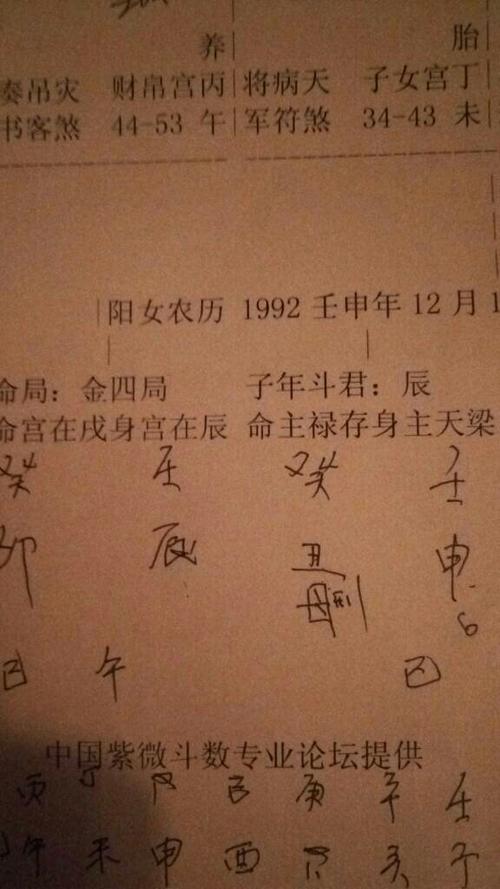 养| 胎
奏吊灾 财帛宫丙|将病天 子女宫丁
书客煞 44-53 午|军符煞 34-43 未
|阳女农历 1992 壬申年 12 月 1
命局: 金四局 子年斗君: 辰
命宫在戌身宫在辰 命主禄存身主天梁
癸 壬 癸 壬
卯 辰 丑 申
母刑 6
巳 午 巳
中国紫微斗数专业论坛提供
丙 丁 戊 己 庚 辛 壬
午 未 申 酉 戌 亥 子